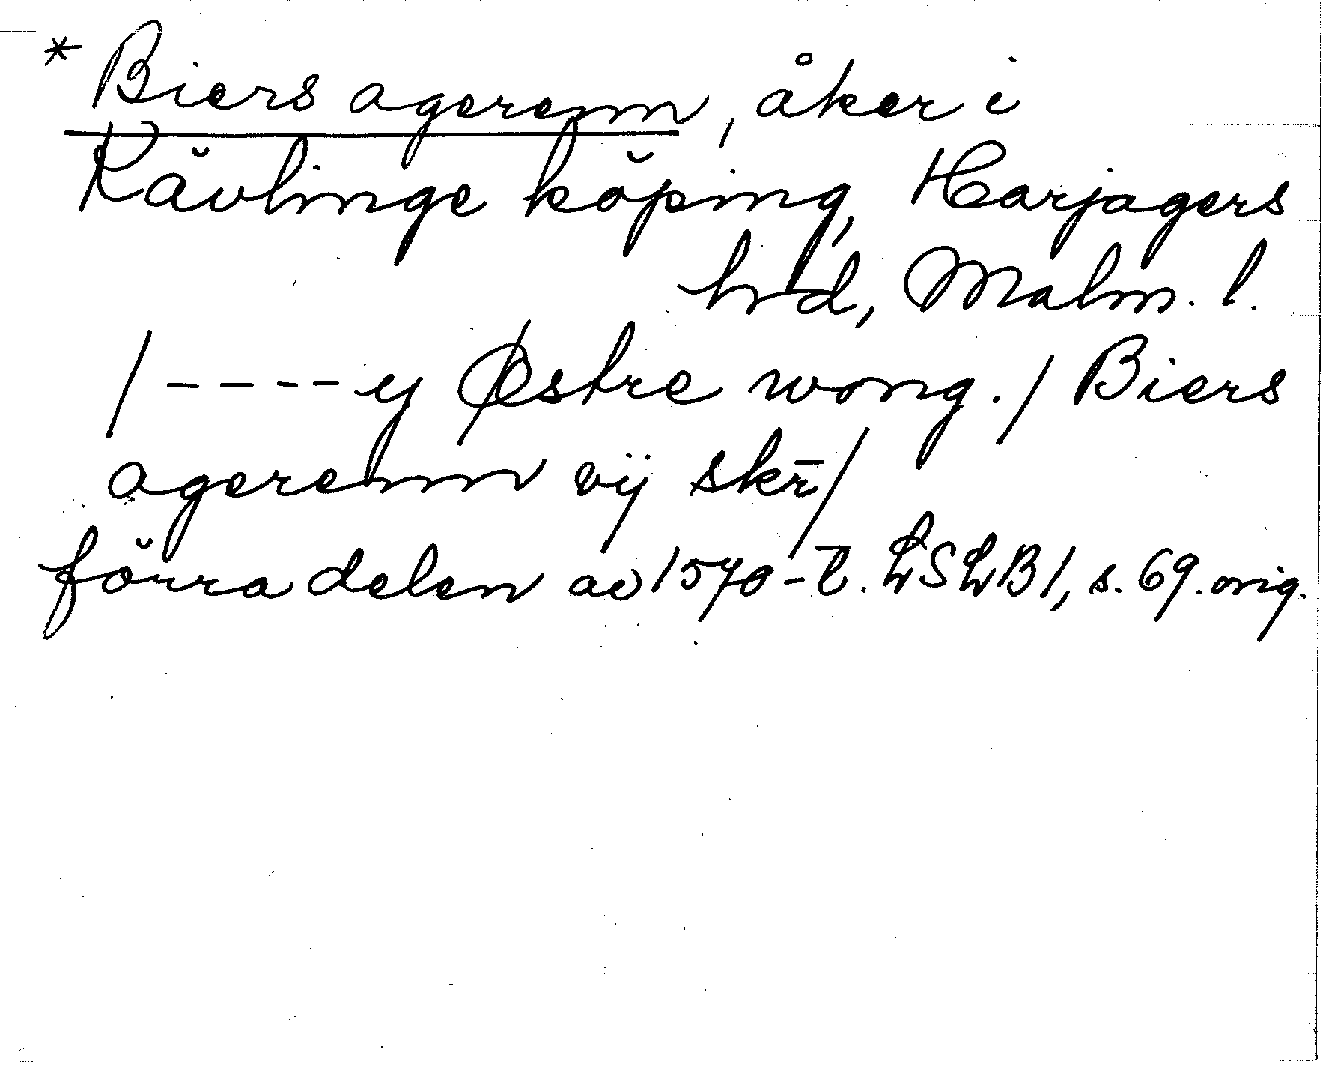 * Biers agerenn, åker i
Kävlinge köping, Harjagers
hrd, Malm. l.
/ - - - - y Østre wong. / Biers
agerenn vij skr̄ /
förra delen av 1570-t. LSLB 1, s. 69. orig.